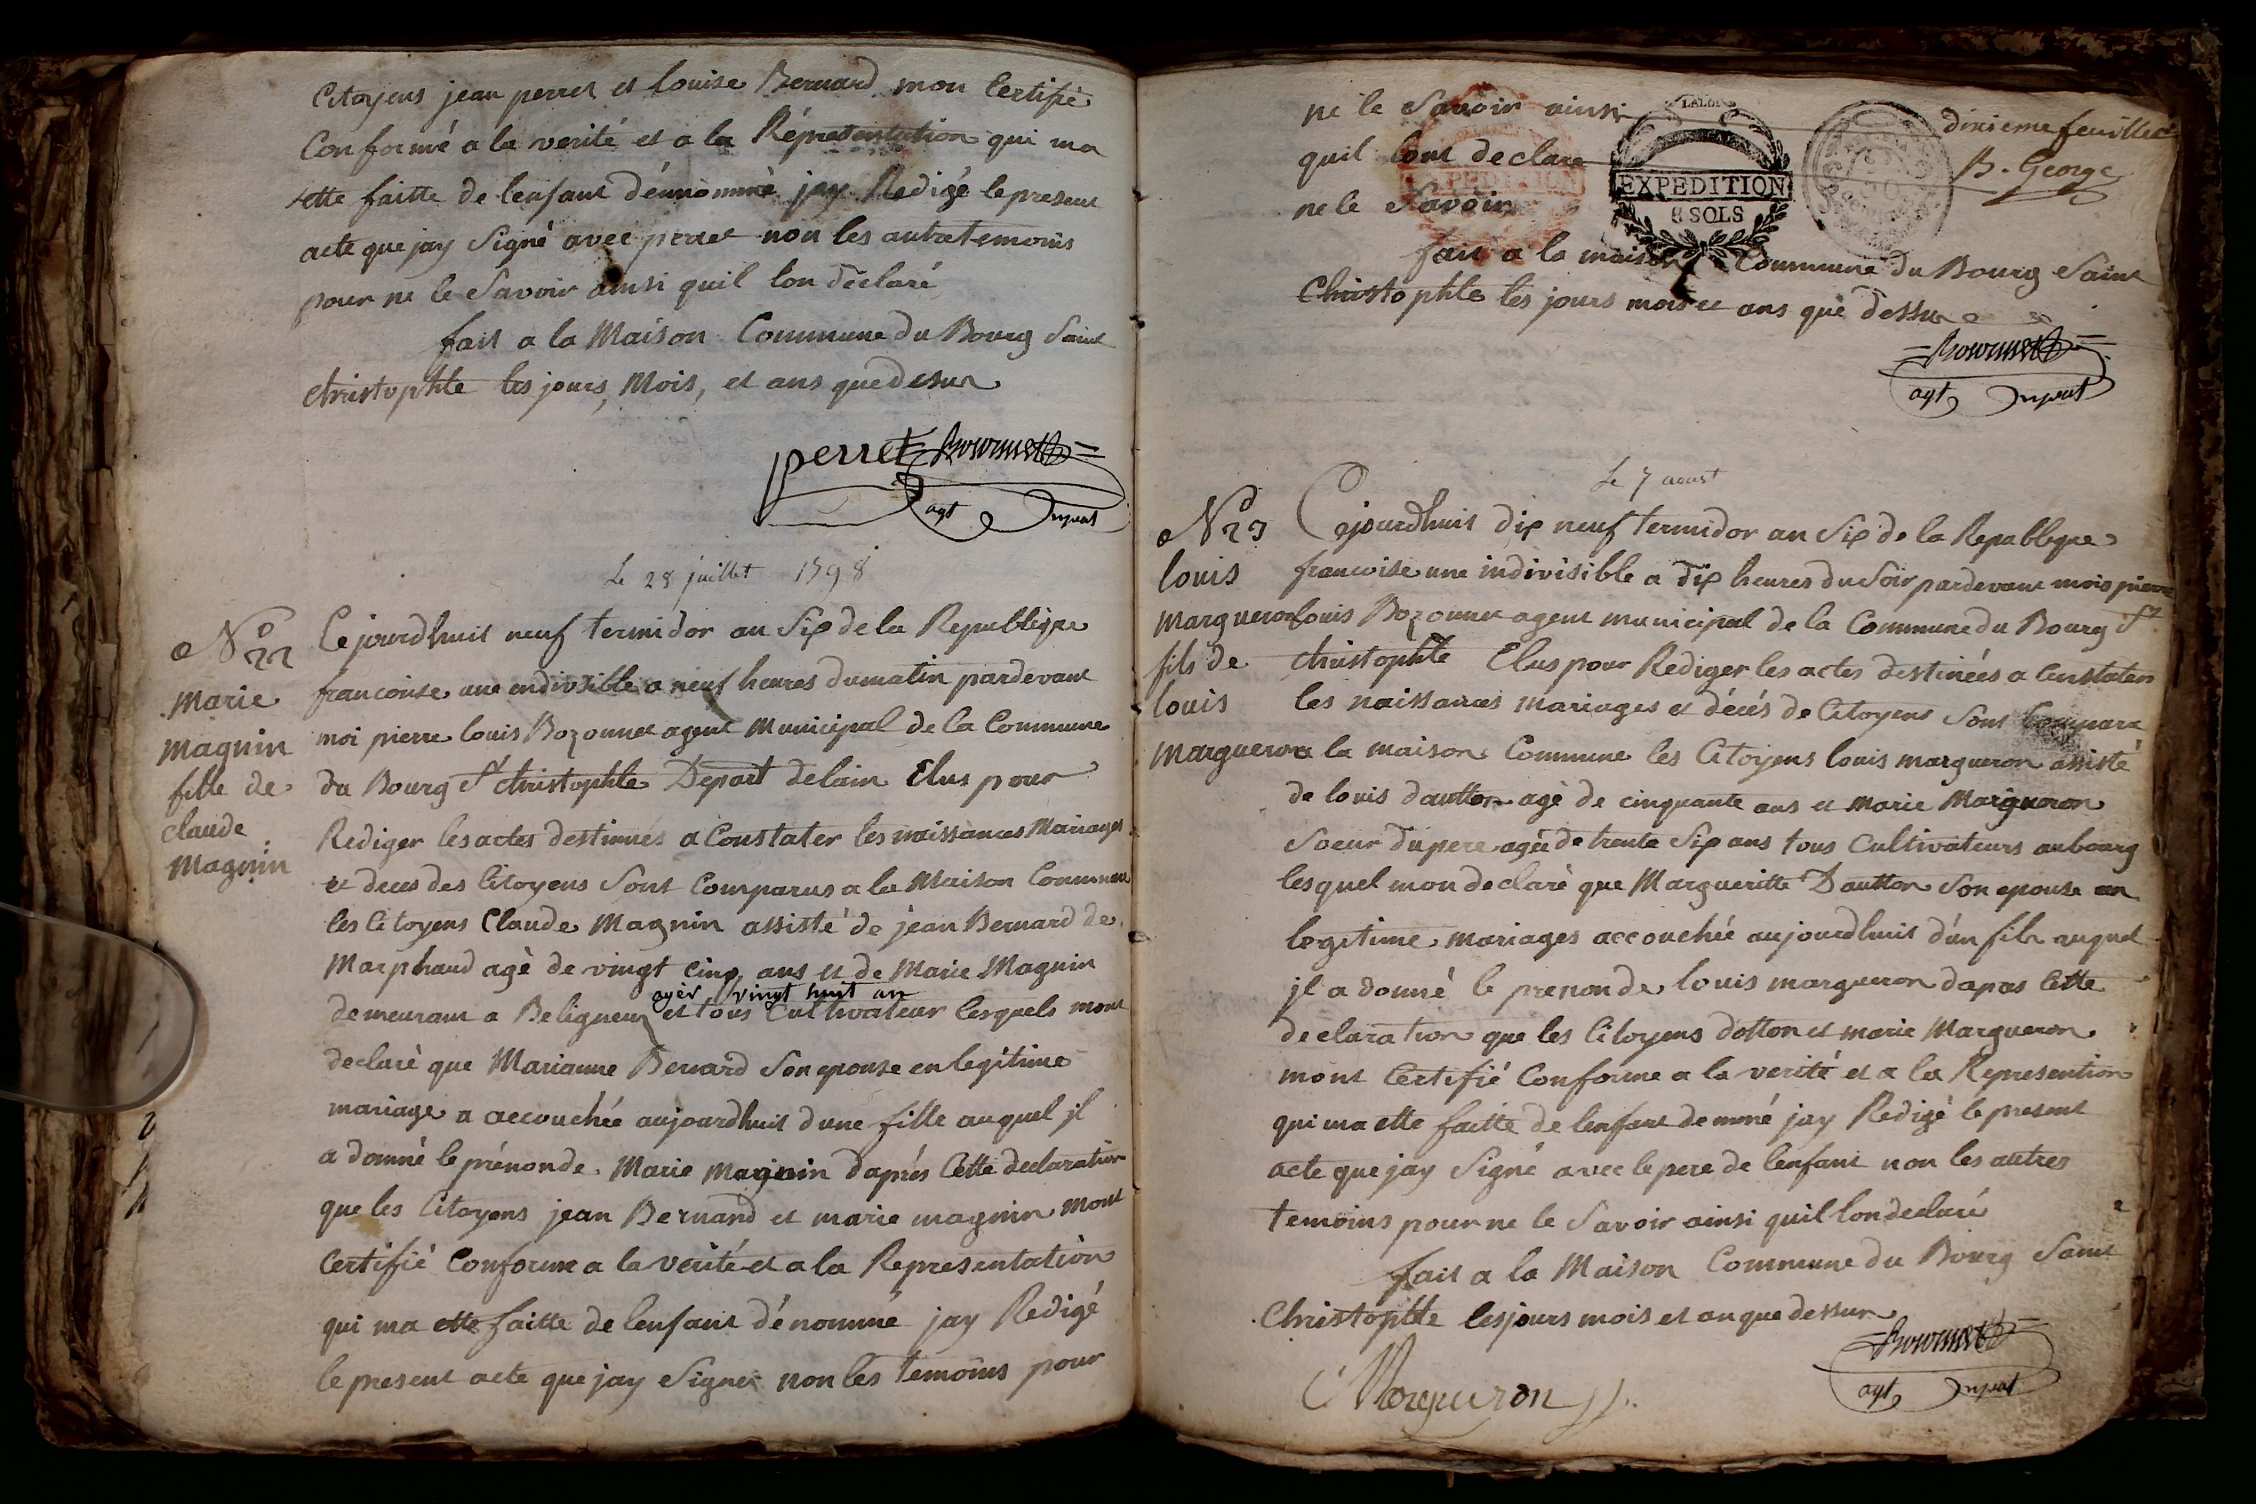 Citoyens jean perret et Louise Bernard mon Certifié
Conformé a la verité et a la Répresentation qui ma
ette faitte de lenfant dénnommé jay Redigé le present
acte que jay Signé avec perret non les autre temoins
pour ne le Savoir ainsi quil lon déclaré
fait a la Maison Commune du Bourg Saint
christophle les jours, Mois, et ans que desur
perret Bozonnet
agt
Le 28 juillet 1798
N° 22
Marie
Magnin
fille de
claude
Magnin
Cejourdhuit neuf termidor an Six de la Republique
francoise une endivisible a neuf heures dumatin pardevant
moi pierre Louis Bozonnet agent Municipal de la Commune
du Bourg St christophle Depart delain Elus pour
Rediger les actes destinnés a Constater les naissances Mariages
et deces des Citoyens Sont Comparus a la Maison Commune
les Citoyens Claude Magnin assisté de jean Bernard de
Marphand agè de vingt cinq ans et de Marie Magnin
ageè vingt huit an
demeurant a Beligneux et tous Cultivateur lesquels mont
declaré que Marianne Bernard Son epouse en legitime
mariage a accouchée aujourdhuit dune fille auquel jl
a donné le prénon de Marie Magnin dapriés Cette declaration
que les Citoyens jean Bernard et marie magnin Mont
Certifié Conforme a la verité et a la Representation
qui ma ette faitte de lenfant dénommé jay Redigé
le present acte que jay Signer non les temoins pour
ne le Savoir ainsi
quil lont declare
ne le Savoir
EXPEDITION
8 SOLS
dixieme feuillet
B. George
fait a la maison Commune du Bourg Saint
Christophle les jours mois et ans que dessu
Bozonnet
agt
Le 7 aoust
N° 23
louis
margueron
fils de
louis
Margueron
Cejourdhuit dix neuf termidor an Six de la Republique
francoise une indivisible a dix heures du Soir pardevant moi pierre
louis Bozonnet agent municipal de la Commune du Bourg St
christophle Elus pour Rediger les actes destinées a Constater
les naissances mariages et décés de Citoyens Sont Comparu
a la maison Commune les Citoyens louis margueron assisté
de louis dautton agè de cinquante ans et Marie Margueron
Soeur dupere agée de trente Six ans tous Cultivateurs aubourg
lesquel mon declaré que Margueritte Dautton Son epouse en
legitime mariages accouchée aujourdhuit dun fils auquel
jl a donné le prenon de louis margueron dapres Cette
declaration que les Citoyens dotton et marie Margueron
mont Certifié Conforme a la verité et a la Represention
qui ma ette faitte de lenfant demné jay Redigé le present
acte que jay Signé avec le pere de lenfant non les autres
temoins pour ne le Savoir ainsi quil lon declaré
fait a la Maison Commune du Bourg Saint
Christophle les jours mois et an que dessur
Margueron Bozonnet
agt